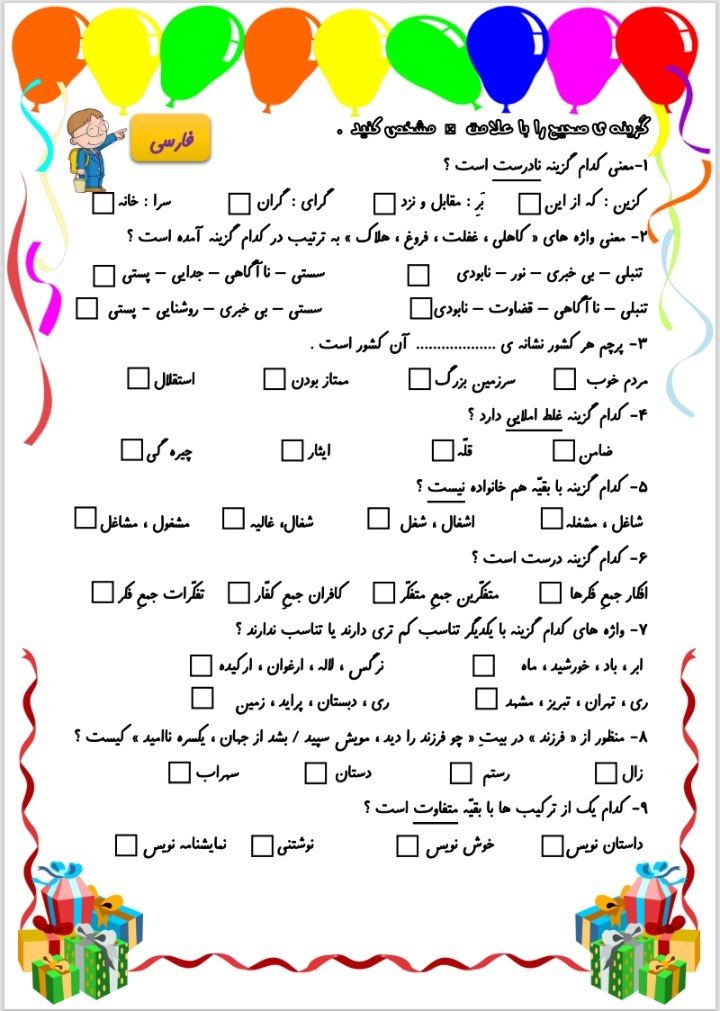 گزینه ی صحیح را با علامت ☒ مشخص کنید .
فارسی
۱-معنی کدام گزینه نادرست است ؟
کزین : که از این □ بَرِ : مقابل و نزد □ گرای : گران □ سرا : خانه □
۲- معنی واژه های « کاهلی ، غفلت ، فروغ ، هلاک » به ترتیب در کدام گزینه آمده است ؟
تنبلی – بی خبری – نور – نابودی □ سستی – نا آگاهی – جدایی – پستی □
تنبلی – نا آگاهی – قضاوت – نابودی □ سستی – بی خبری – روشنایی - پستی □
۳- پرچم هر کشور نشانه ی ................... آن کشور است .
مردم خوب □ سرزمین بزرگ □ ممتاز بودن □ استقلال □
۴- کدام گزینه غلط املایی دارد ؟
ضامن □ قلّه □ ایثار □ چیره گی □
۵- کدام گزینه با بقیّه هم خانواده نیست ؟
شاغل ، مشغله □ اشغال ، شغل □ شغال، غالیه □ مشغول ، مشاغل □
۶- کدام گزینه درست است ؟
افکار جمعِ فکرها □ متفکّرین جمعِ متفکّر □ کافران جمعِ کفّار □ تفکّرات جمعِ فکر □
۷- واژه های کدام گزینه با یکدیگر تناسب کم تری دارند یا تناسب ندارند ؟
ابر ، باد ، خورشید ، ماه □ نرگس ، لاله ، ارغوان ، ارکیده □
ری ، تهران ، تبریز ، مشهد □ ری ، دبستان ، پراید ، زمین □
۸- منظور از « فرزند » در بیتِ « چو فرزند را دید ، مویش سپید / بشد از جهان ، یکسره ناامید » کیست ؟
زال □ رستم □ دستان □ سهراب □
۹- کدام یک از ترکیب ها با بقیّه متفاوت است ؟
داستان نویس □ خوش نویس □ نوشتنی □ نمایشنامه نویس □